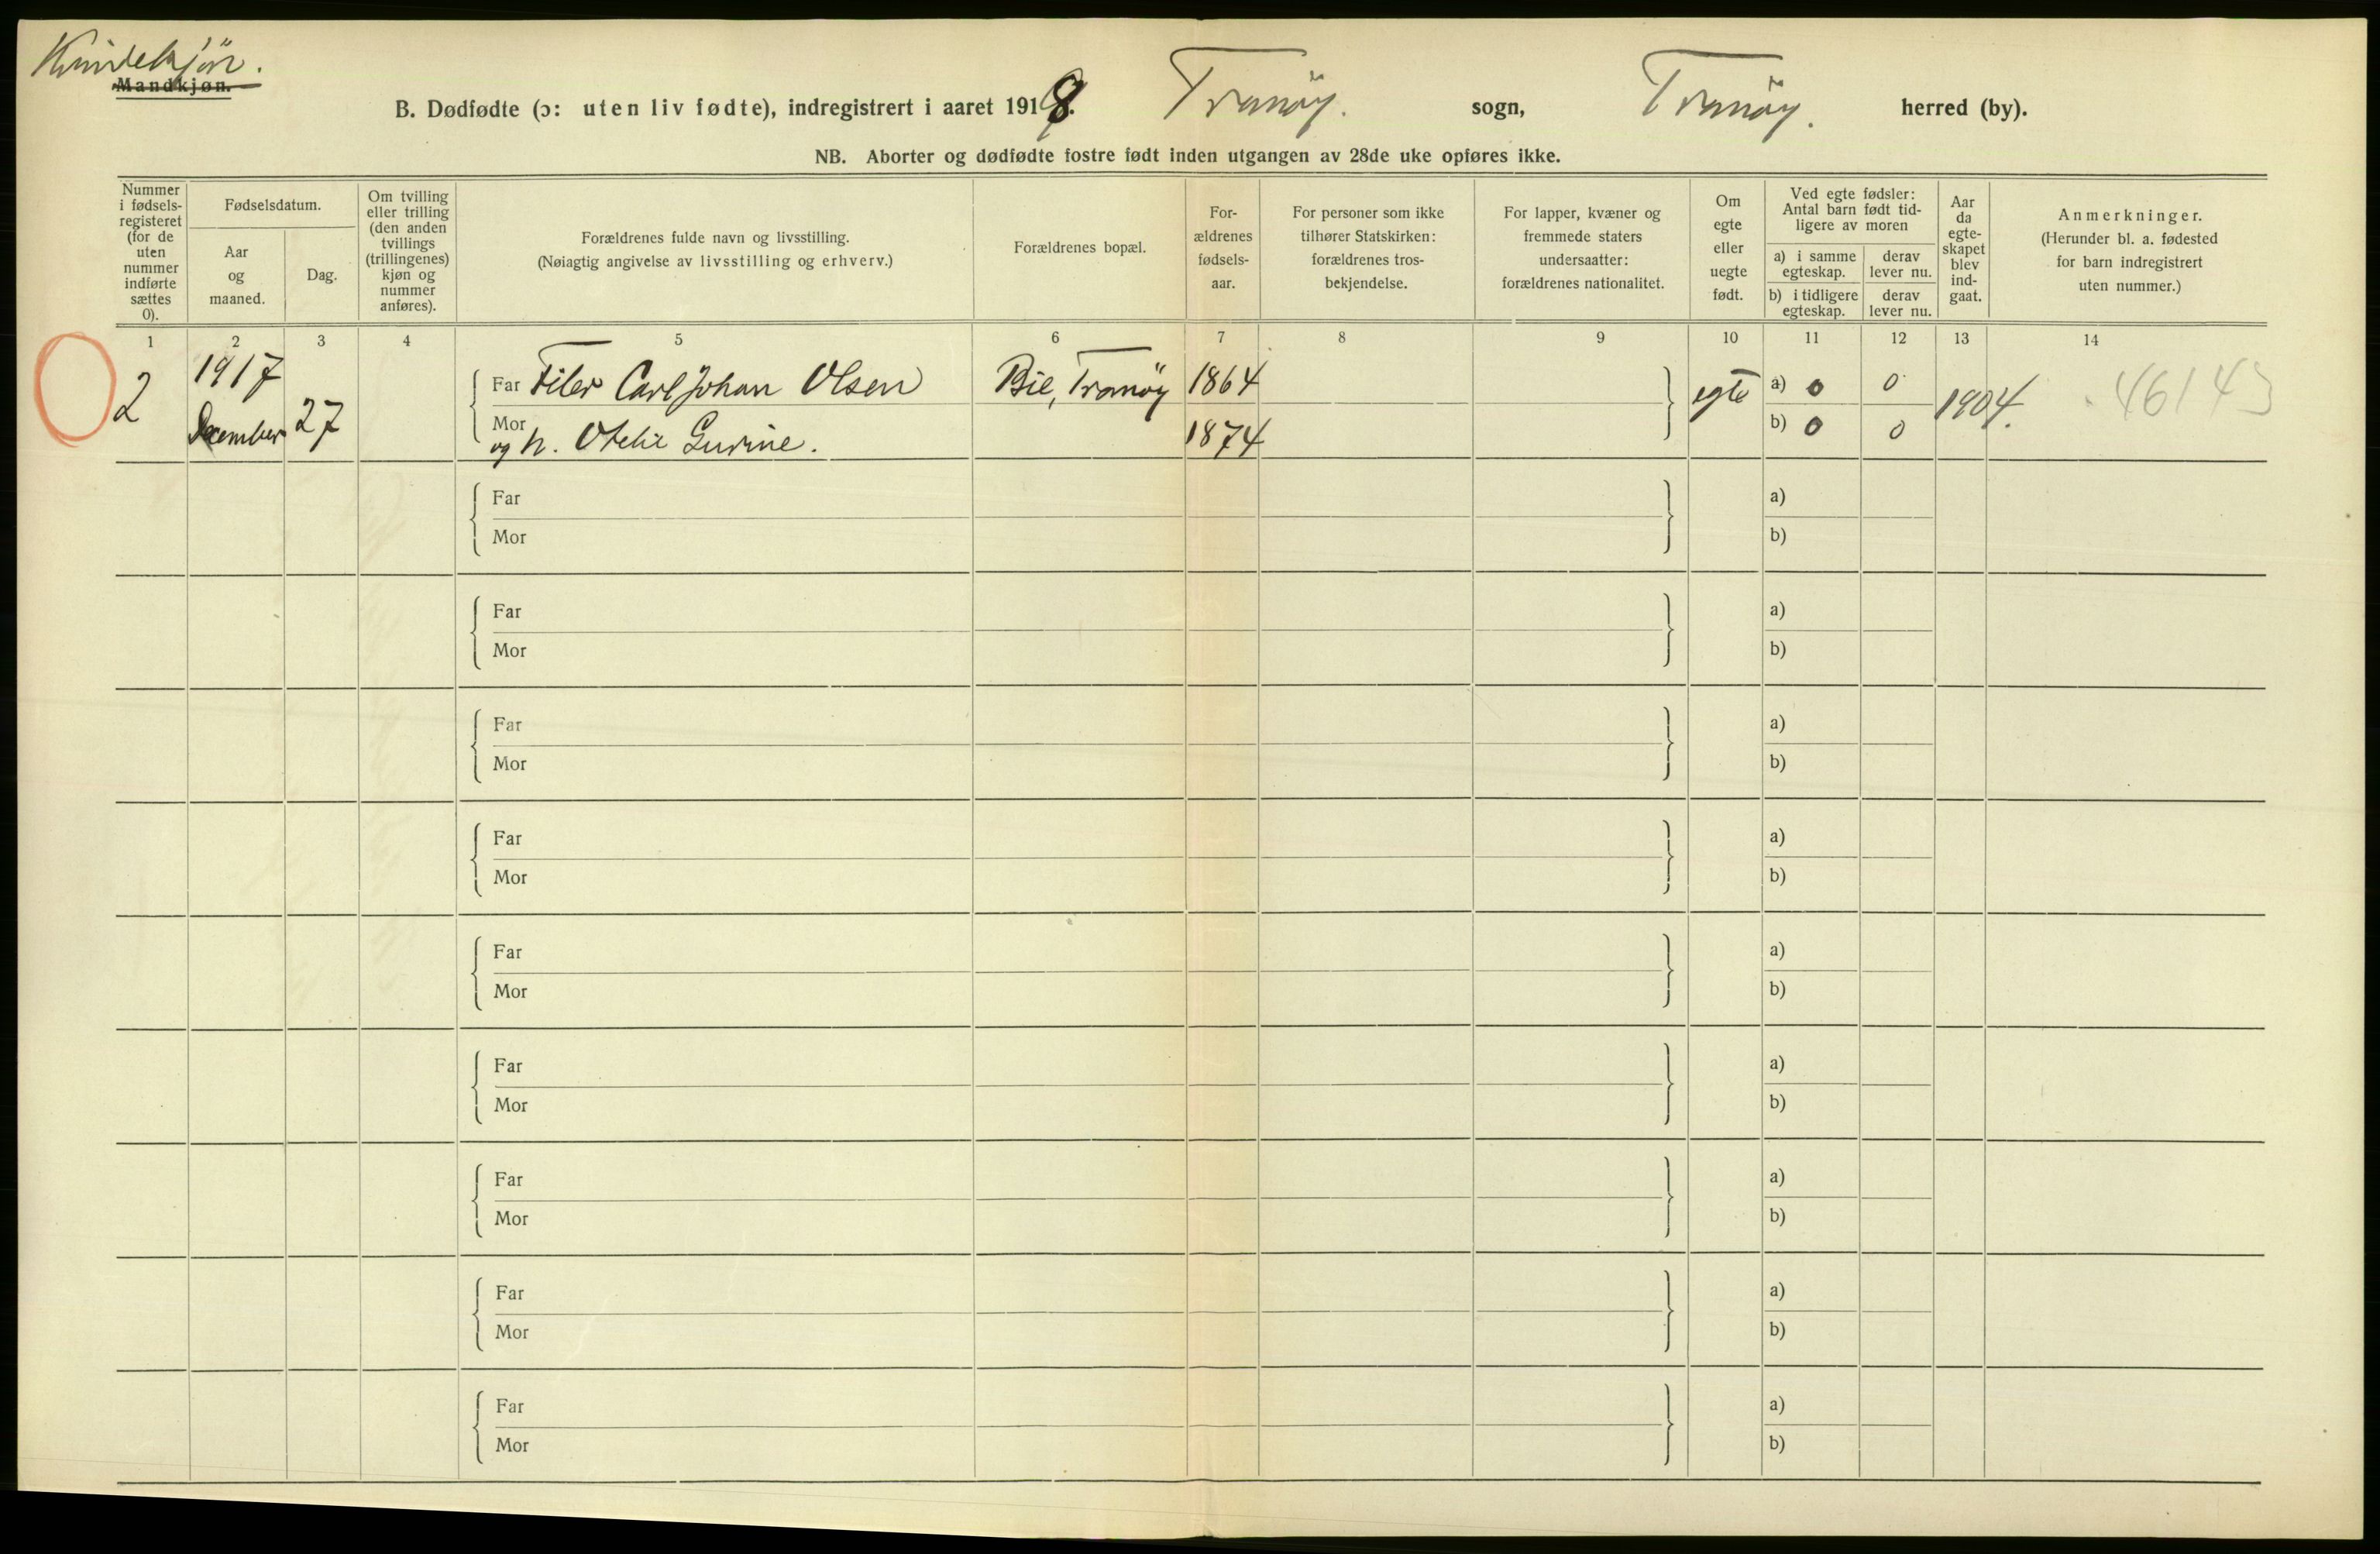 Kvindekjøn.
Mandkjøn.
B. Dødfødte (ɔ: uten liv fødte), indregistrert i aaret 1918. Tranøy. sogn, Tranøy. herred (by).
NB. Aborter og dødfødte fostre født inden utgangen av 28de uke opføres ikke.
Nummer i fødsels-registeret (for de uten nummer indførte sættes 0).
Fødselsdatum.
Aar og maaned.
Dag.
Om tvilling eller trilling (den anden tvillings (trillingenes) kjøn og nummer anføres).
Forældrenes fulde navn og livsstilling.
(Nøiagtig angivelse av livsstilling og erhverv.)
Forældrenes bopæl.
For-ældrenes fødsels-aar.
For personer som ikke tilhører Statskirken: forældrenes tros-bekjendelse.
For lapper, kvæner og fremmede staters undersaatter: forældrenes nationalitet.
Om egte eller uegte født.
Ved egte fødsler: Antal barn født tid-ligere av moren
a) i samme egteskap.
derav lever nu.
b) i tidligere egteskap.
derav lever nu.
Aar da egte-skapet blev ind-gaat.
Anmerkninger.
(Herunder bl. a. fødested for barn indregistrert uten nummer.)
1 2 3 4 5 6 7 8 9 10 11 12 13 14
2 1917 December 27
Far Filer Carl Johan Olsen Bie, Tranöy 1864 egte a) 0 0 1904. 46143
Mor og h. Otelie Gurine. 1874 b) 0 0
Far a)
Mor b)
Far a)
Mor b)
Far a)
Mor b)
Far a)
Mor b)
Far a)
Mor b)
Far a)
Mor b)
Far a)
Mor b)
Far a)
Mor b)
Far a)
Mor b)